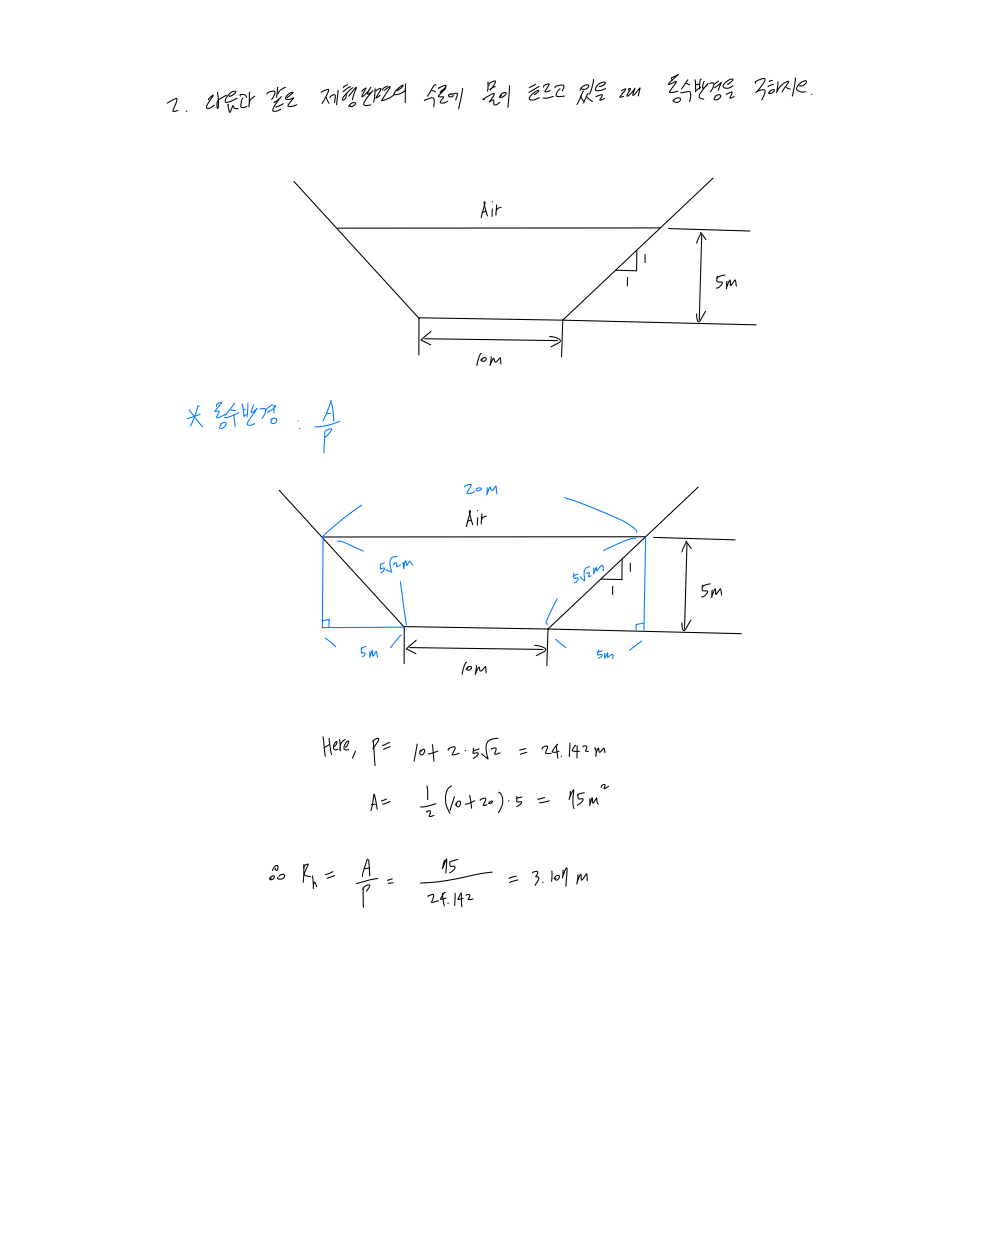 2. 다음과 같은 제형단면의 수로에 물이 흐르고 있을 때 동수반경을 구하시오.
Air
1
1
5m
10m
* 동수반경 : A/P
20m
Air
5√2m
5√2m
1
1
5m
5m
5m
10m
Here, P= 10+ 2·5√2 = 24.142m
A= 1/2 (10+20)·5 = 75m²
∴ Rh = A/P = 75/24.142 = 3.107 m